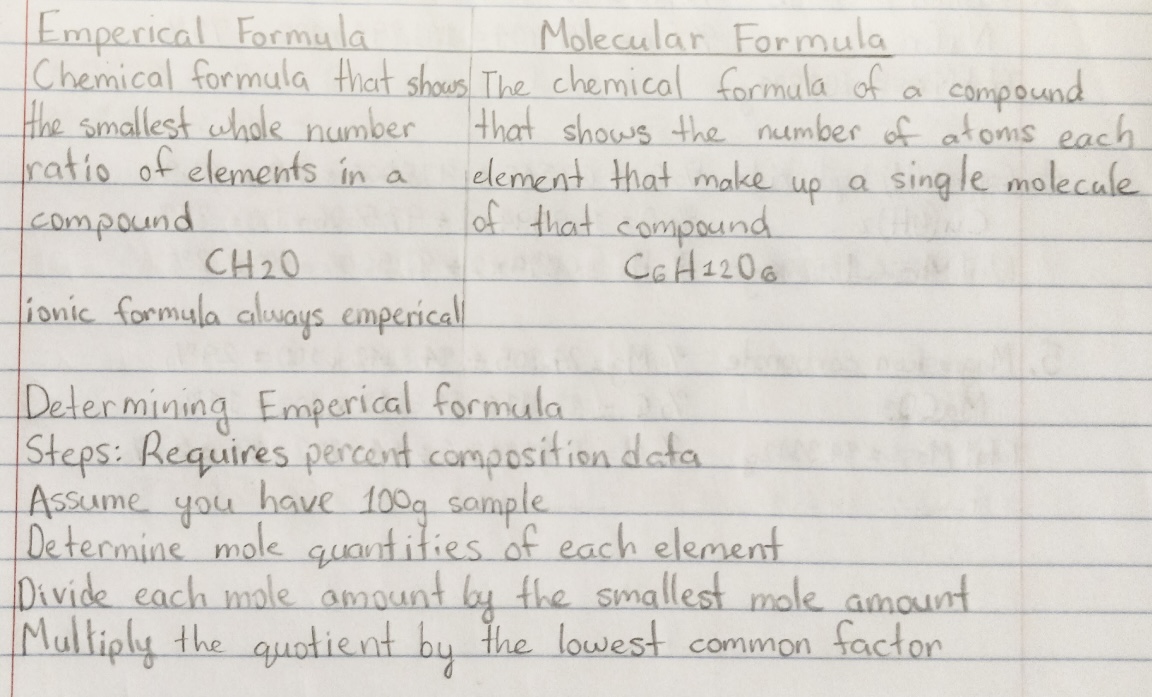 Emperical Formula
Chemical formula that shows
the smallest whole number
ratio of elements in a
compound
CH2O
ionic formula always emperical
Molecular Formula
The chemical formula of a compound
that shows the number of atoms each
element that make up a single molecule
of that compound
C6H12O6
Determining Emperical formula
Steps: Requires percent composition data
Assume you have 100g sample
Determine mole quantities of each element
Divide each mole amount by the smallest mole amount
Multiply the quotient by the lowest common factor